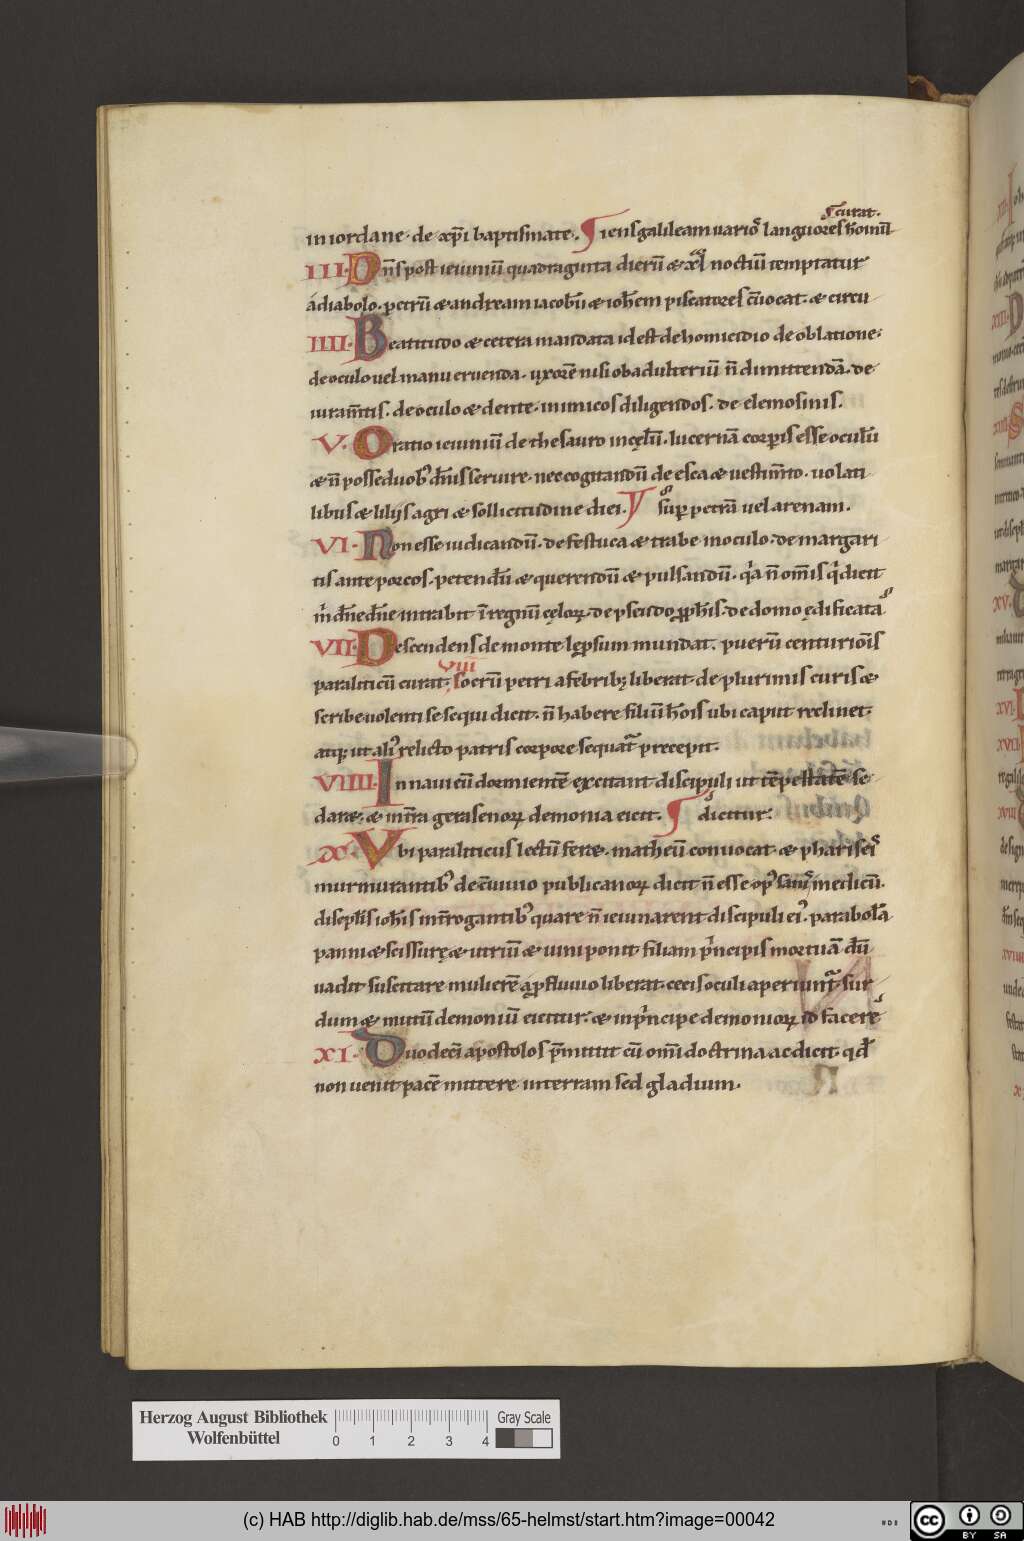 curat.
in iordane. de xp̄i baptismate. iens galileam uarios languores hominū
III. Dn̄s post ieiuniū quadraginta dierū & xl noctiū temptatur
a diabolo. petrū & andream iacobū & ioh̄em piscatores c̄uocat. & circu
IIII. Beatitudo & cetera mandata id est de homicidio de oblatione.
de oculo uel manu eruenda. uxorē nisi ob adulteriū n̄ dimittendā. de
iuram̄tis. de oculo & dente. inimicos diligendos. de elemosinis.
V. Oratio ieiuniū de thesauro in cęlū. lucernā corporis esse oculū
& n̄ posse duob' dn̄is seruire. nec cogitandū de esca & uestim̄to. uolati
libus & liliis agri & sollicitudine diei. sup petrā uel arenam.
VI. Non esse iudicandū. de festuca & trabe in oculo. de margari
tis ante porcos. petendū & querendū & pulsandū. q̇a n̄ om̄is q̇ dicit
m̄ dn̄e dn̄e intrabit ī regnū cęloꝝ. de pseudo ꝓph̄is. de domo ędificata
VII. Descendens de monte lepsum mundat. puerū centurioīs
VIII
paraliticū curat. socrū petri a febribꝫ liberat. de plurimis curis &
scribe uolenti se sequi dicit. n̄ habere filiū hōis ubi caput reclinet.
atqꝫ ut ali' relicto patris corpore sequat̄ precepit.
VIIII. In naui eū dormientē excitant discipuli ut tēpestatē se
dare. & int̄ra gerasenoꝝ demonia eicit. dicitur.
X. Vbi paraliticus lectū ferre. matheū conuocat & phariseis
murmurantib' de c̄uiuio publicanoꝝ dicit n̄ esse op' sanis medicū.
discipl̄is ioh̄is int̄rogantib' quare n̄ ieiunarent discipuli ei'. parabolā
panni & scissurę & utriū & uini ponit filiam p̄ncipis mortuā dū
uadit suscitare mulierē a ꝓfluuio liberat. ceci oculi aperiunt̄ sur
dum & mutū demoniū eicitur. & in p̄ncipe demonioꝝ id facere
XI. Duodeci apostolos p̄mittit cū om̄i doctrina ac dicit. qđ
non uenit pacē mittere in terram sed gladium.
Herzog August Bibliothek
Wolfenbüttel
0 1 2 3 4
Gray Scale
(c) HAB http://diglib.hab.de/mss/65-helmst/start.htm?image=00042
cc BY SA